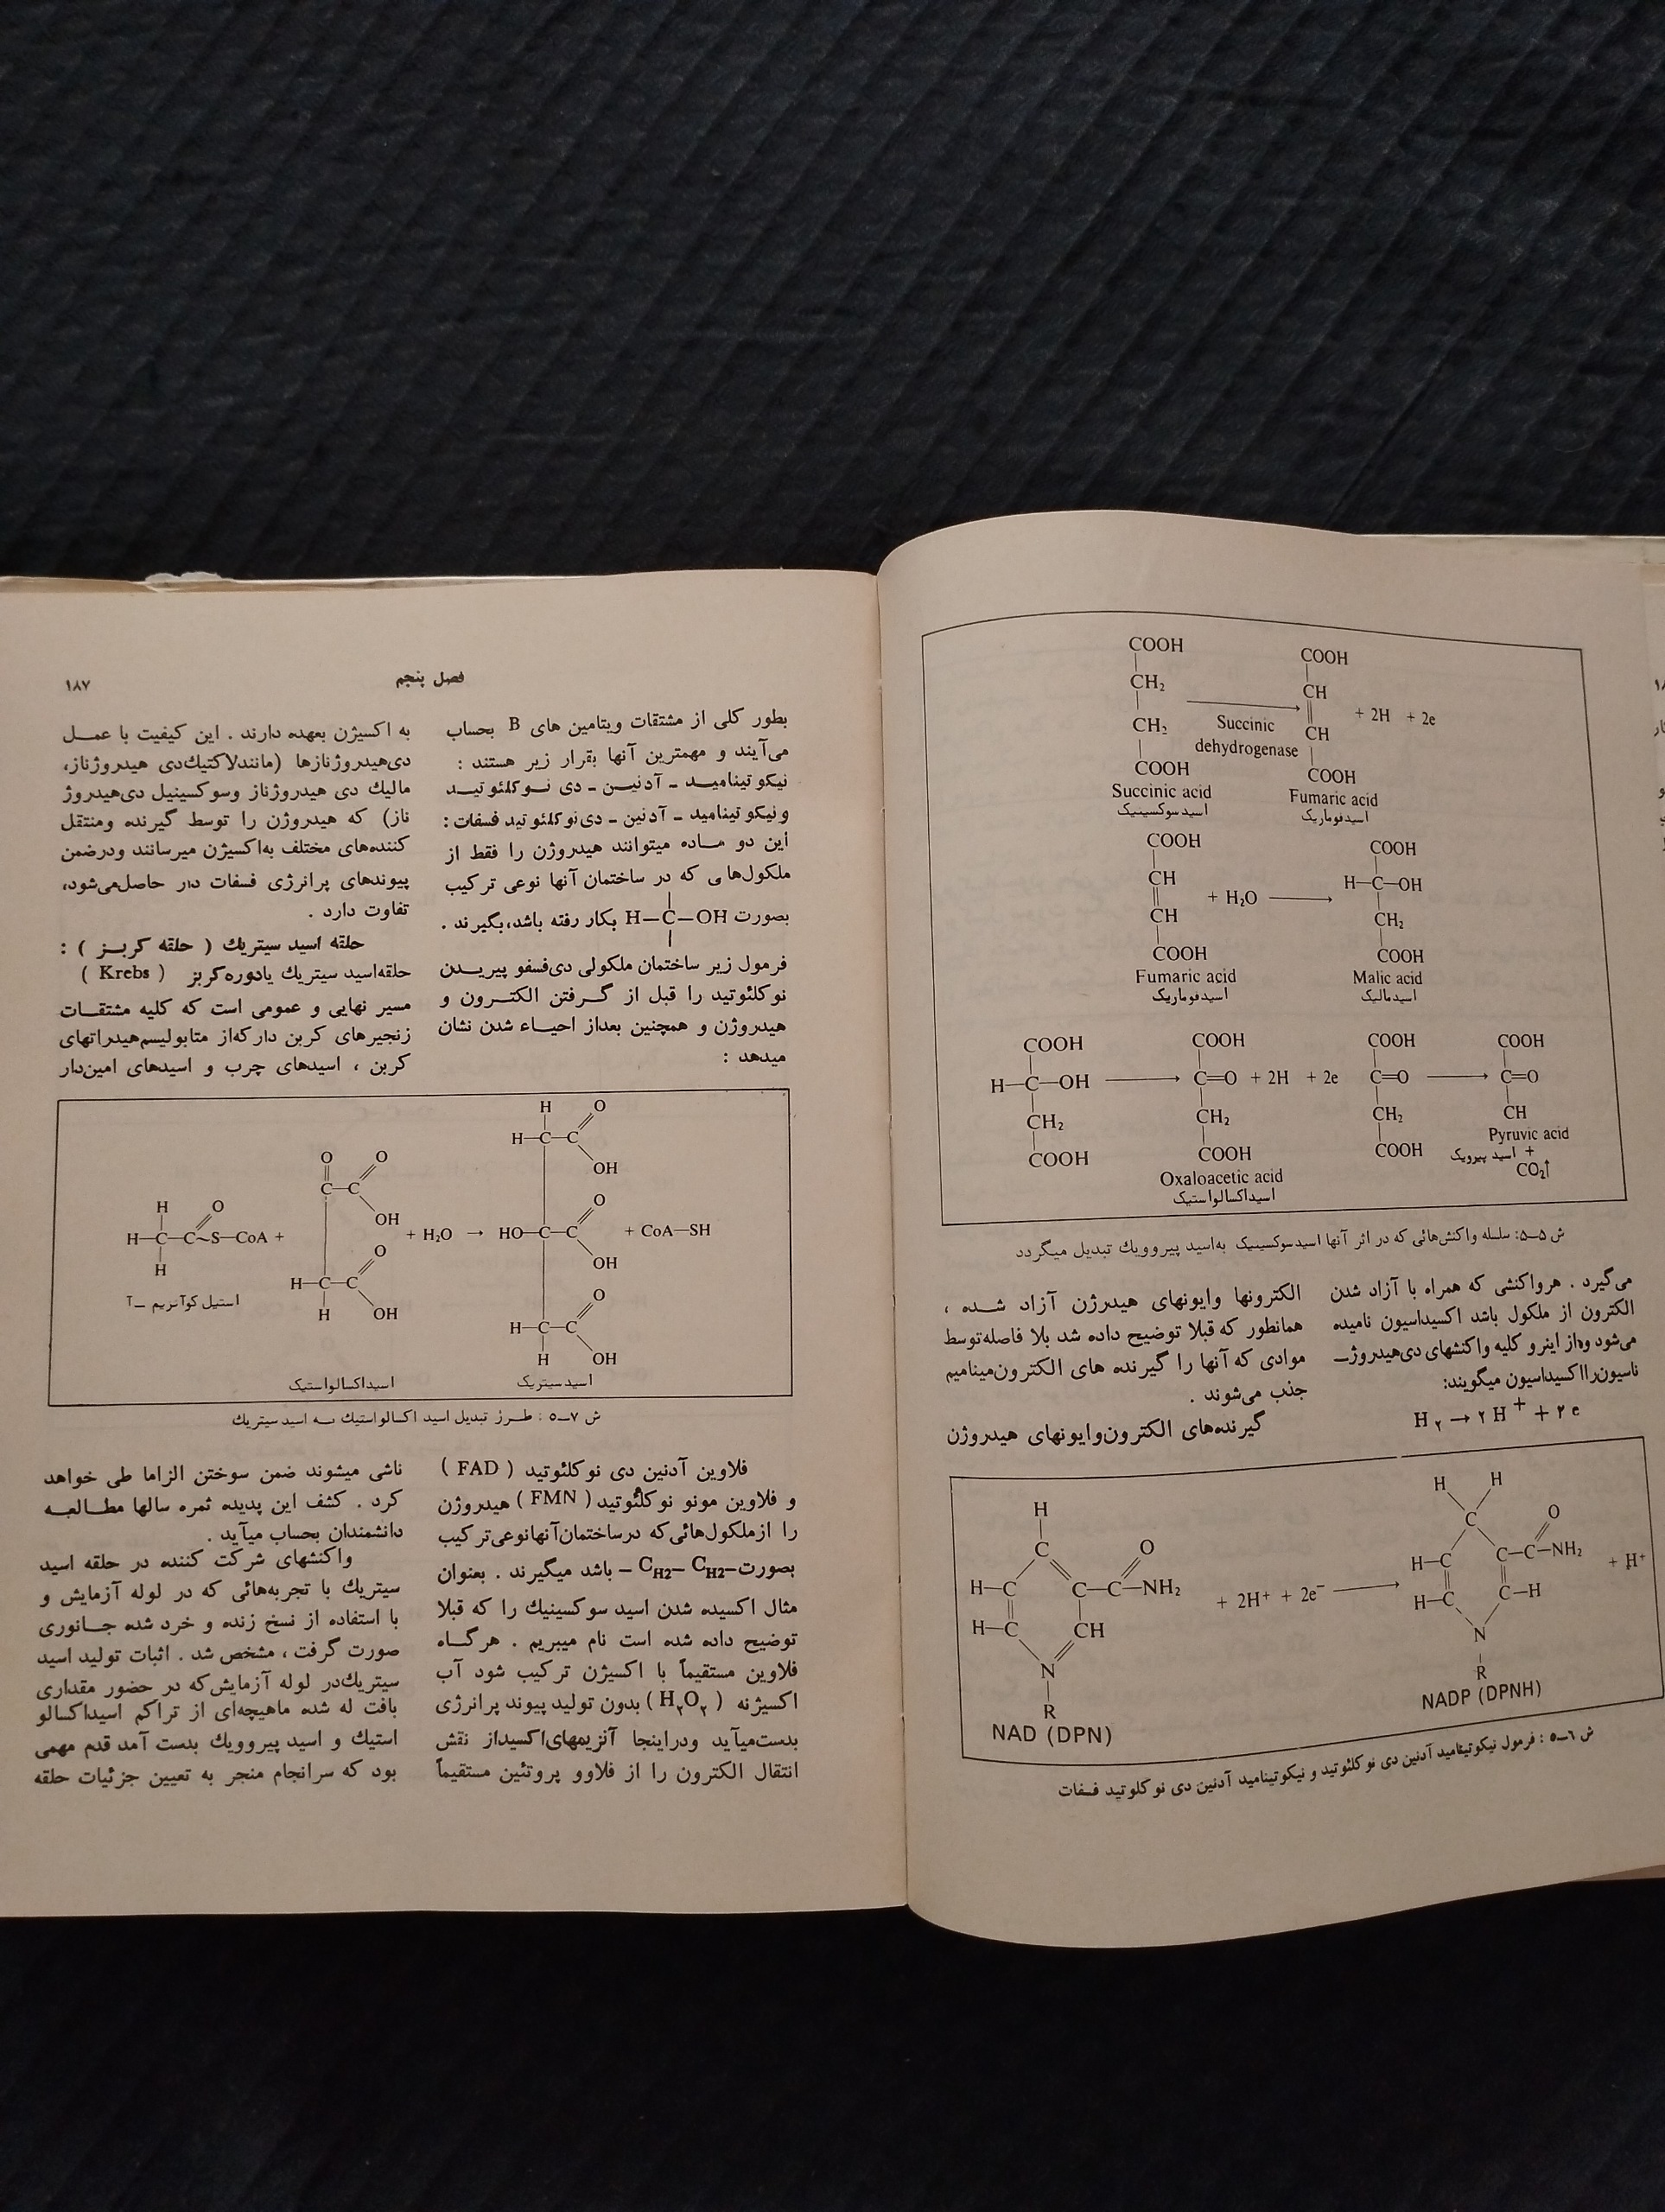 COOH
CH₂
CH₂
COOH
Succinic acid
اسید سوکسینیک
Succinic
dehydrogenase
COOH
CH
CH
COOH
Fumaric acid
اسیدفوماریک
+ 2H + 2e
COOH
CH
CH
COOH
Fumaric acid
اسیدفوماریک
+ H₂O
COOH
H—C—OH
CH₂
COOH
Malic acid
اسیدمالیک
COOH
H—C—OH
CH₂
COOH
COOH
C=O + 2H + 2e
CH₂
COOH
Oxaloacetic acid
اسیداکسالواستیک
COOH
C=O
CH₂
COOH
COOH
C=O
CH
Pyruvic acid
اسید پیرویک +
CO₂↑
ش ۵—۵: سلسله واکنش‌هائی که در اثر آنها اسیدسوکسینیک به‌اسید پیروویك تبدیل میگردد
می‌گیرد . هرواکنشی که همراه با آزاد شدن
الکترون از ملکول باشد اکسیداسیون نامیده
می‌شود واز اینرو کلیه واکنشهای دی‌هیدروژ—
ناسیون‌رااکسیداسیون میگویند:
H₂ → ۲ H⁺ + ۲ e
الکترونها وایونهای هیدرژن آزاد شده ،
همانطور که قبلا توضیح داده شد بلا فاصله‌توسط
موادی که آنها را گیرنده های الکترون‌مینامیم
جذب می‌شوند .
گیرنده‌های الکترون‌وایونهای هیدروژن
H
C
H—C
C—C—NH₂
O
H—C
CH
N
R
NAD (DPN)
+ 2H⁺ + 2e⁻
H H
C
O
H—C
C—C—NH₂
H—C
C—H
N
R
+ H⁺
NADP (DPNH)
ش ۶—۵ : فرمول نیکوتینامید آدنین دی نوکلئوتید و نیکوتینامید آدنین دی نوکلوتید فسفات
فصل پنجم
۱۸۷
بطور کلی از مشتقات ویتامین های B بحساب
می‌آیند و مهمترین آنها بقرار زیر هستند :
نیکوتینامید — آدنین — دی نوکلئوتید
ونیکوتینامید — آدنین — دی‌نوکلئوتید فسفات:
این دو ماده میتوانند هیدروژن را فقط از
ملکول‌هایی که در ساختمان آنها نوعی ترکیب
بصورت H—C—OH بکار رفته باشد،بگیرند .
فرمول زیر ساختمان ملکولی دی‌فسفو پیریدن
نوکلئوتید را قبل از گرفتن الکترون و
هیدروژن و همچنین بعداز احیاء شدن نشان
میدهد :
به اکسیژن بعهده دارند . این کیفیت با عمل
دی‌هیدروژنازها (مانندلاکتیك‌دی هیدروژناز،
مالیك دی هیدروژناز وسوکسینیل دی‌هیدروژ
ناز) که هیدروژن را توسط گیرنده ومنتقل
کننده‌های مختلف به‌اکسیژن میرسانند ودرضمن
پیوندهای پرانرژی فسفات دار حاصل‌می‌شود،
تفاوت دارد .
حلقه اسید سیتریك ( حلقه کربز ) :
حلقه‌اسید سیتریك یادوره‌کربز ( Krebs )
مسیر نهایی و عمومی است که کلیه مشتقات
زنجیرهای کربن دارکه‌از متابولیسم‌هیدراتهای
کربن ، اسیدهای چرب و اسیدهای امین‌دار
H
O
H—C—C~S—CoA +
H
استیل کوآنزیم —آ
O O
C—C
OH
O
H—C—C
H OH
اسیداکسالواستیک
+ H₂O →
H O
H—C—C
OH
O
HO—C—C
OH
O
H—C—C
H OH
اسیدسیتریک
+ CoA—SH
ش ۷—۵ : طرز تبدیل اسید اکسالواستیك به اسید سیتریك
فلاوین آدنین دی نوکلئوتید ( FAD )
و فلاوین مونو نوکلئوتید ( FMN ) هیدروژن
را ازملکول‌هائی‌که درساختمان‌آنهانوعی‌ترکیب
بصورت—CH2—CH2— باشد میگیرند . بعنوان
مثال اکسیده شدن اسید سوکسینیك را که قبلا
توضیح داده شده است نام میبریم . هرگاه
فلاوین مستقیماً با اکسیژن ترکیب شود آب
اکسیژنه ( H₂O₂ ) بدون تولید پیوند پرانرژی
بدست‌میآید ودراینجا آنزیمهای‌اکسیداز نقش
انتقال الکترون را از فلاوو پروتئین مستقیماً
ناشی میشوند ضمن سوختن الزاما طی خواهد
کرد . کشف این پدیده ثمره سالها مطالعه
دانشمندان بحساب میآید .
واکنشهای شرکت کننده در حلقه اسید
سیتریك با تجربه‌هائی که در لوله آزمایش و
با استفاده از نسخ زنده و خرد شده جانوری
صورت گرفت ، مشخص شد . اثبات تولید اسید
سیتریك‌در لوله آزمایش‌که در حضور مقداری
بافت له شده ماهیچه‌ای از تراکم اسیداکسالو
استیك و اسید پیروویك بدست آمد قدم مهمی
بود که سرانجام منجر به تعیین جزئیات حلقه